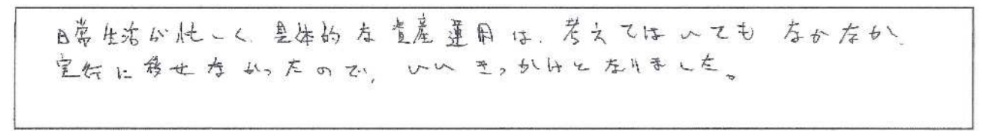 日常生活が忙しく、具体的な資産運用は、考えてはいてもなかなか、
実行に移せなかったので、いいきっかけとなりました。